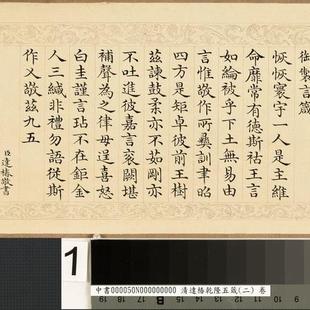 御製言箴
恢恢寰宇一人是主維
命靡常有德斯祜王言
如綸被乎下土無易由
言惟敬作所彝訓聿昭
四方是矩卓彼前王樹
茲諫鼓柔亦不茹剛亦
不吐進彼嘉言袞闕堪
補聲為之律毋逞喜怒
白圭謹言玷不在鉅金
人三緘非禮勿語從斯
作乂敬茲九五
臣達椿敬書
1
中書000050N000000000 清達椿乾隆五箴(二) 卷